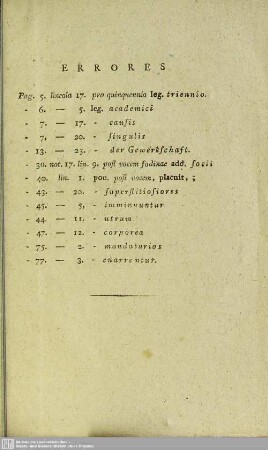 ERRORES
Pag. 5. lineola 17. pro quinquennio leg. triennio.
- 6. — 5. leg. academici
- 7. — 17. - cauſis
- 7. — 20. - ſingulis
- 13. — 23. - der Gewerkſchaft.
- 30. not. 17. lin. 9. poſt vocem fodinae add. ſocii
- 40. lin. 1. pon. poſt vocem, placuit, ;
- 43. — 20. - ſuperſtitioſiores
- 45. — 5. - imminuuntur
- 44. — 11. - utrum
- 47. — 12. - corporea
- 75. — 2. - mandatarios
- 77. — 3. - enarrentur.